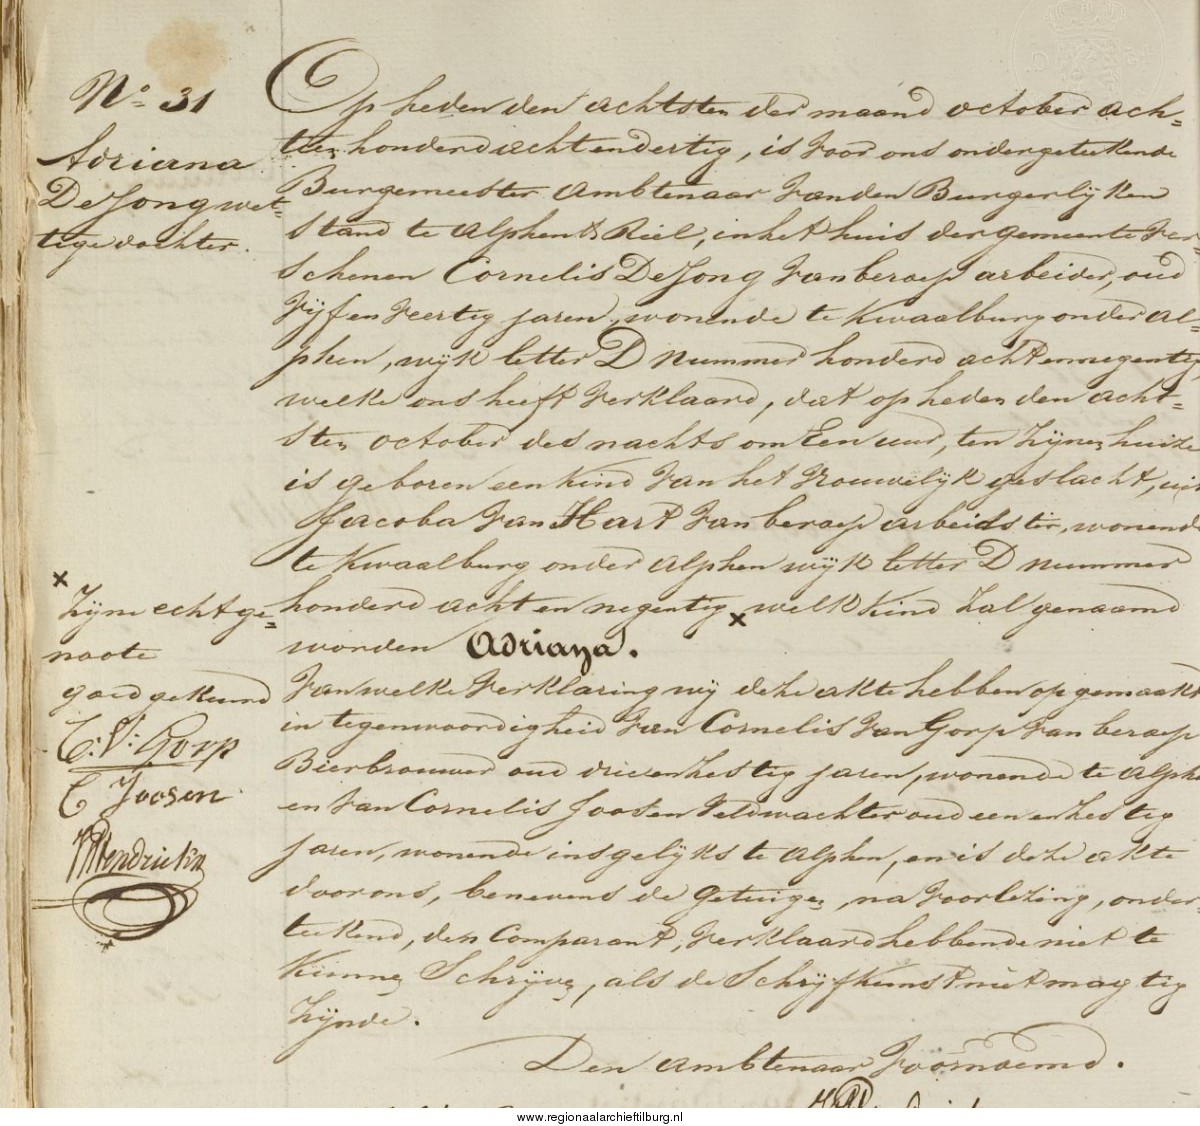 No. 31
Adriana
De Jong wet=
tige dochter.
Op heden den achtsten der maand october ach=
tien honderd acht en dertig, is voor ons ondergeteekende
Burgemeester Ambtenaar van den Burgerlyken
stand te Alphen & Riel, in het huis der gemeente ver=
schenen Cornelis De Jong van beroep arbeider, oud
vyf en veertig jaren, wonende te Kwaalburg onder Al=
phen, wyk letter D nummer honderd acht en negentig
welke ons heeft verklaard, dat op heden den acht-
sten october des nachts om Een uur, ten zynen huize
is geboren een kind van het vrouwelyk geslacht, uit
Jacoba van Hart van beroep arbeidster, wonende
te Kwaalburg onder Alphen wyk letter D nummer
honderd acht en negentig x welk kind zal genaamd
worden Adriana.
x
zyne echtge=
noote
goed gekeurd
C: V: Gorp
C Joosen
van welke verklaring wy deze akte hebben opgemaakt
in tegenwoordigheid van Cornelis van Gorp van beroep
Bierbrouwer oud drie en zestig jaren, wonende te Alphen
en van Cornelis Joosen veldwachter oud een en zestig
jaren, wonende insgelyks te Alphen, en is deze akte
door ons, benevens de getuigen, na voorlezing, onder-
teekend, den Comparant, verklaard hebbende niet te
kunnen Schryven, als de Schryfkunst niet magtig
zynde.
Den Ambtenaar voornoemd.
www.regionaalarchieftilburg.nl